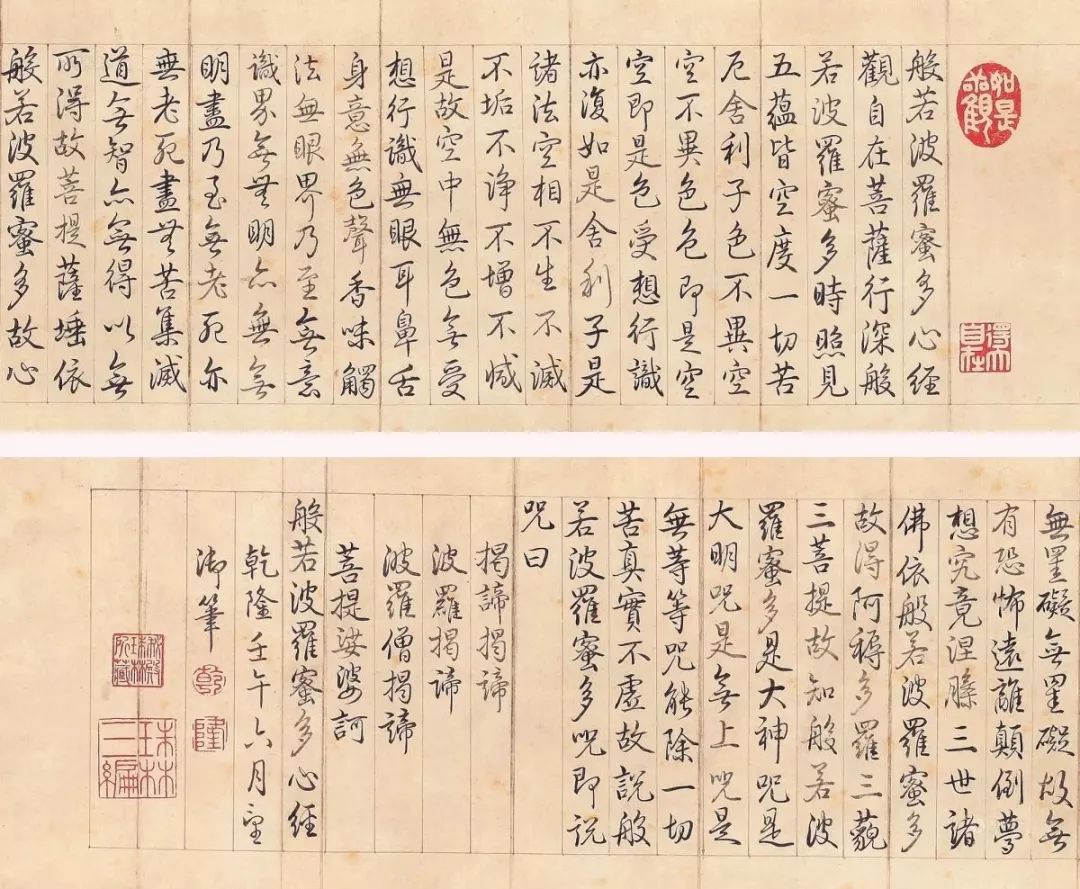 如是觀
得大自在
般若波羅蜜多心經
觀自在菩薩行深般
若波羅蜜多時照見
五蘊皆空度一切苦
厄舍利子色不異空
空不異色色即是空
空即是色受想行識
亦復如是舍利子是
諸法空相不生不滅
不垢不淨不增不減
是故空中無色無受
想行識無眼耳鼻舌
身意無色聲香味觸
法無眼界乃至無意
識界無無明亦無無
明盡乃至無老死亦
無老死盡無苦集滅
道無智亦無得以無
所得故菩提薩埵依
般若波羅蜜多故心
無罣礙無罣礙故無
有恐怖遠離顛倒夢
想究竟涅槃三世諸
佛依般若波羅蜜多
故得阿耨多羅三藐
三菩提故知般若波
羅蜜多是大神咒是
大明咒是無上咒是
無等等咒能除一切
苦真實不虛故說般
若波羅蜜多咒即說
咒曰
揭諦揭諦
波羅揭諦
波羅僧揭諦
菩提娑婆訶
般若波羅蜜多心經
乾隆壬午六月望
御筆
乾
隆
秘殿珠林所藏
珠林三編